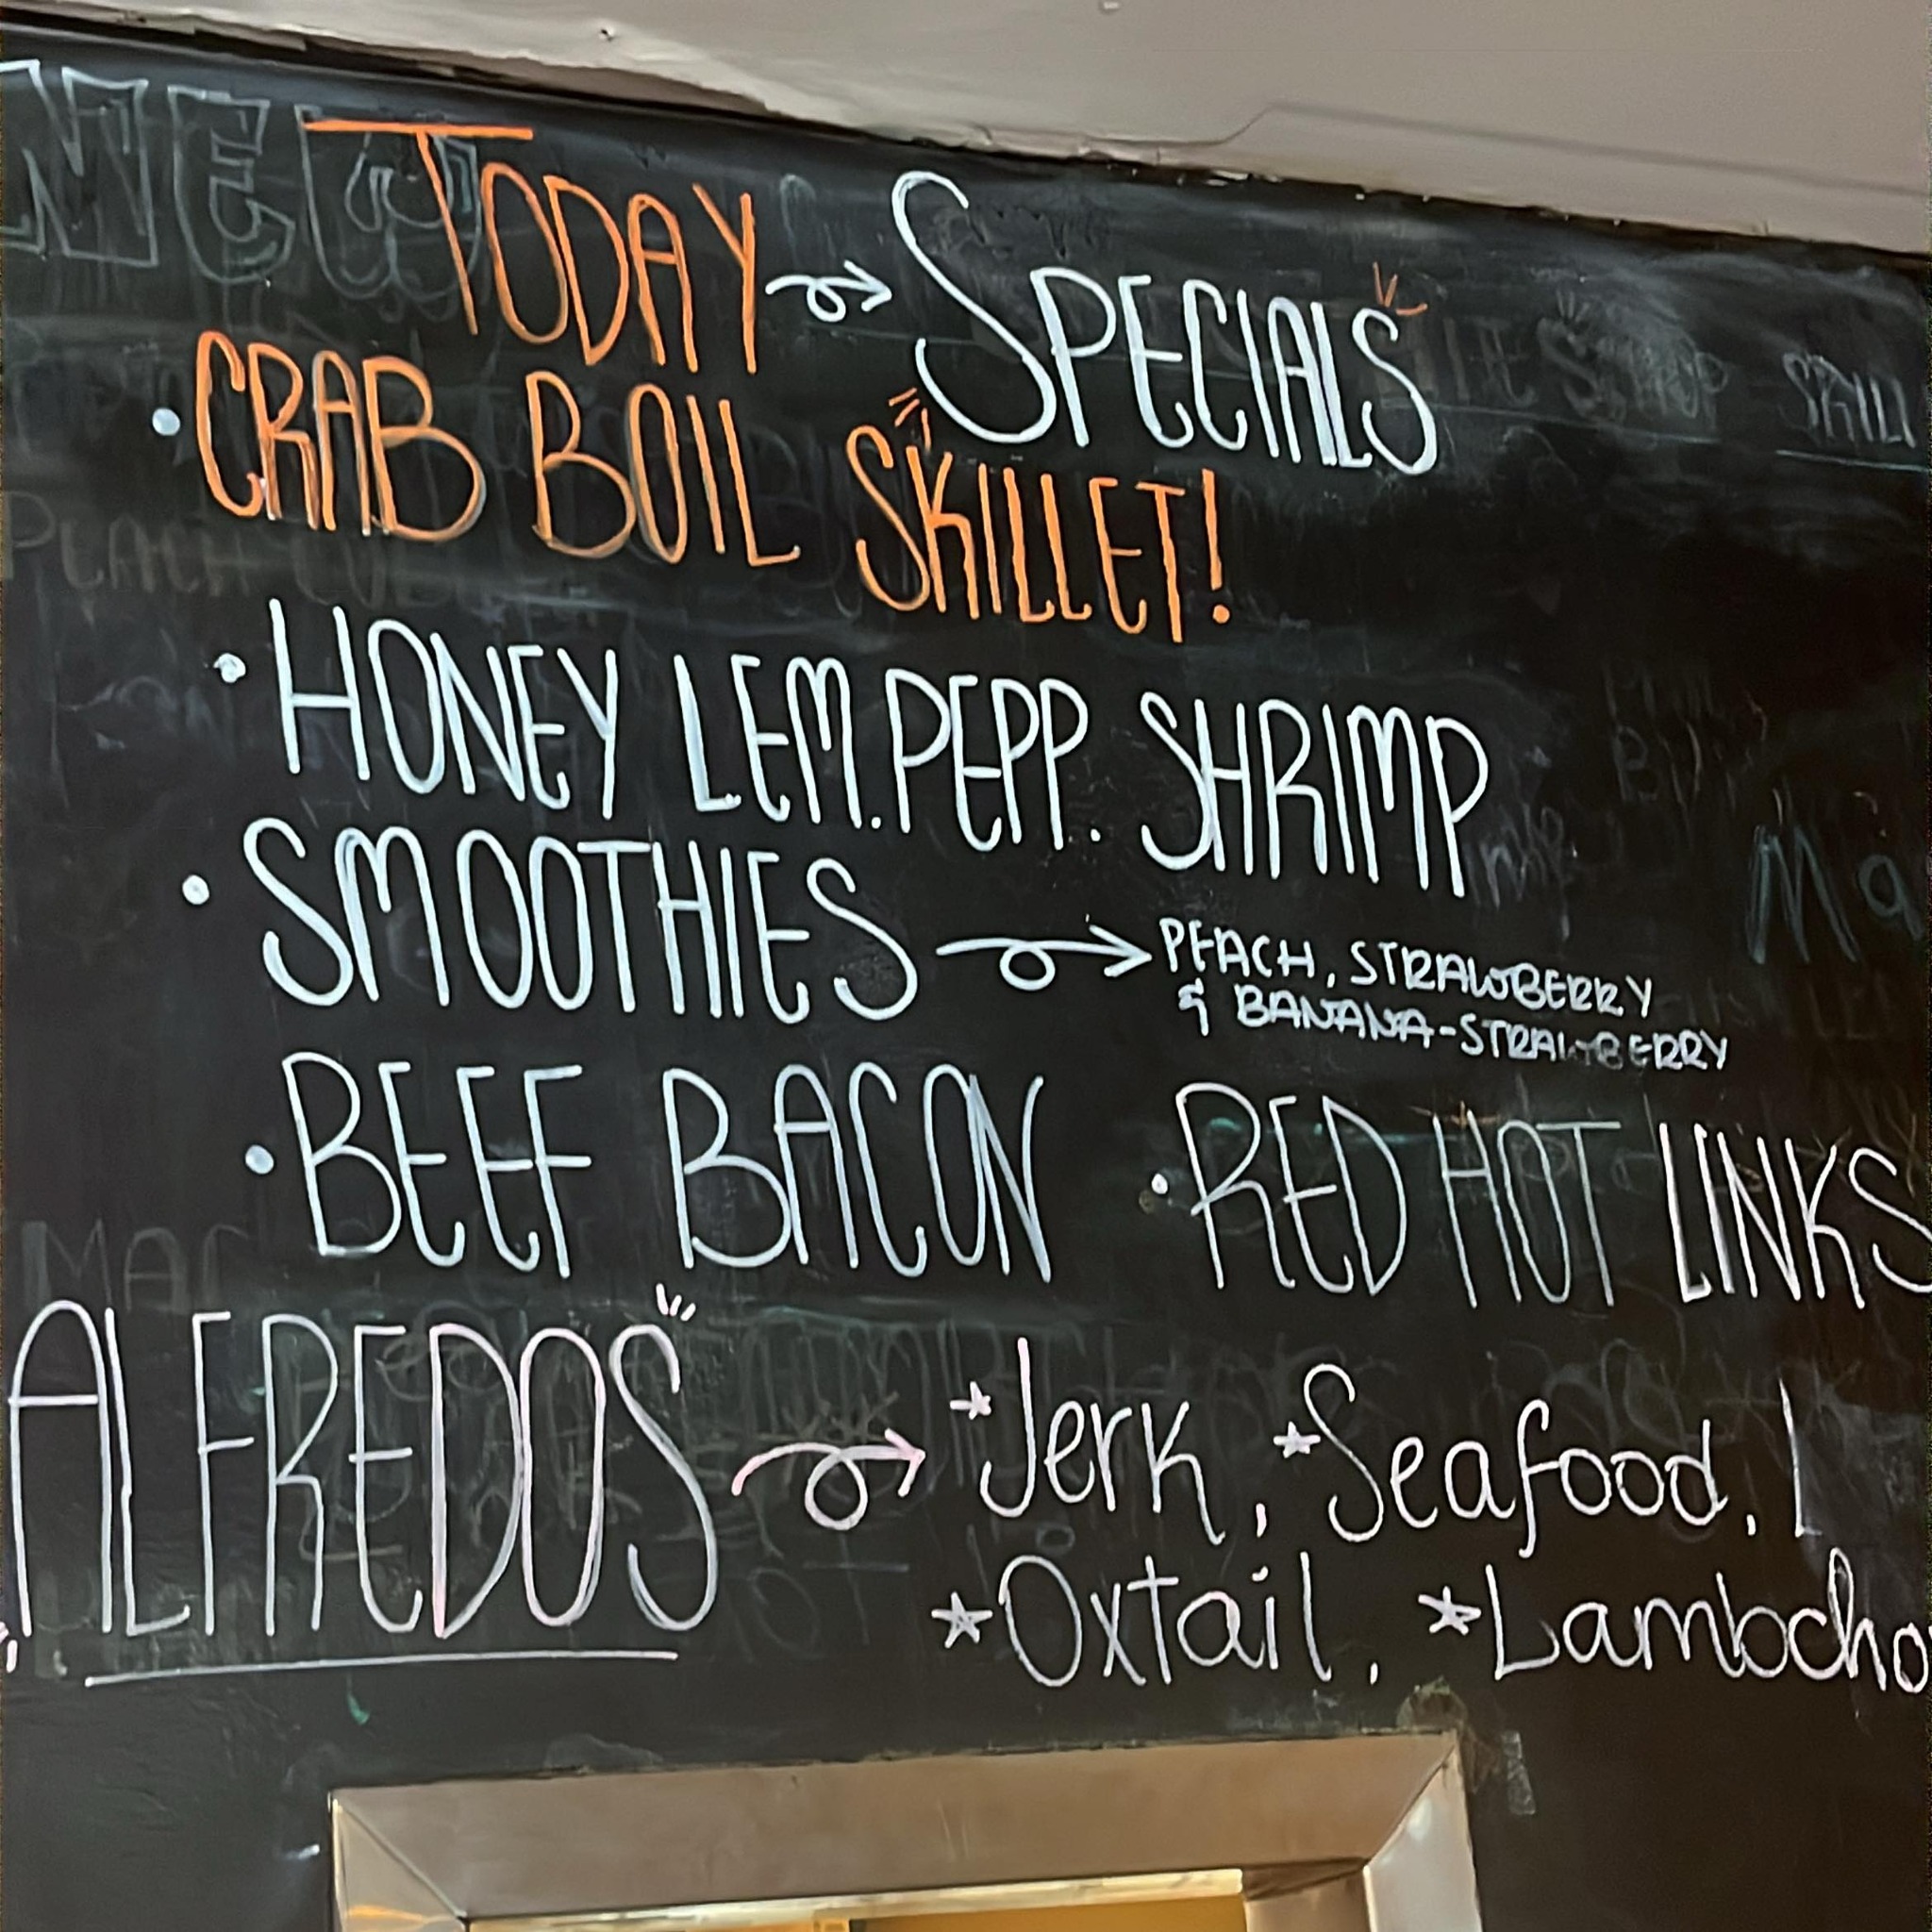 TODAY → SPECIALS
• CRAB BOIL SKILLET!
• HONEY LEM. PEPP. SHRIMP
• SMOOTHIES → PEACH, STRAWBERRY
& BANANA-STRAWBERRY
• BEEF BACON • RED HOT LINKS
ALFREDOS → *Jerk, *Seafood,
*Oxtail, *Lambcho